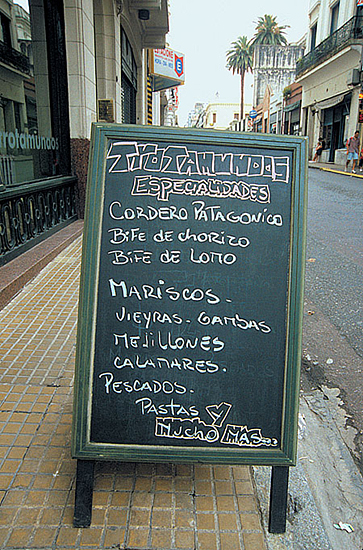 TROTAMUNDOS
ESPECIALIDADES
CORDERO PATAGONICO
BIFE DE CHORIZO
BIFE DE LOMO
MARISCOS.
VIEYRAS. GAMBAS
MEJILLONES
CALAMARES.
PESCADOS.
PASTAS Y
MUCHO MAS...
rotamundos
E